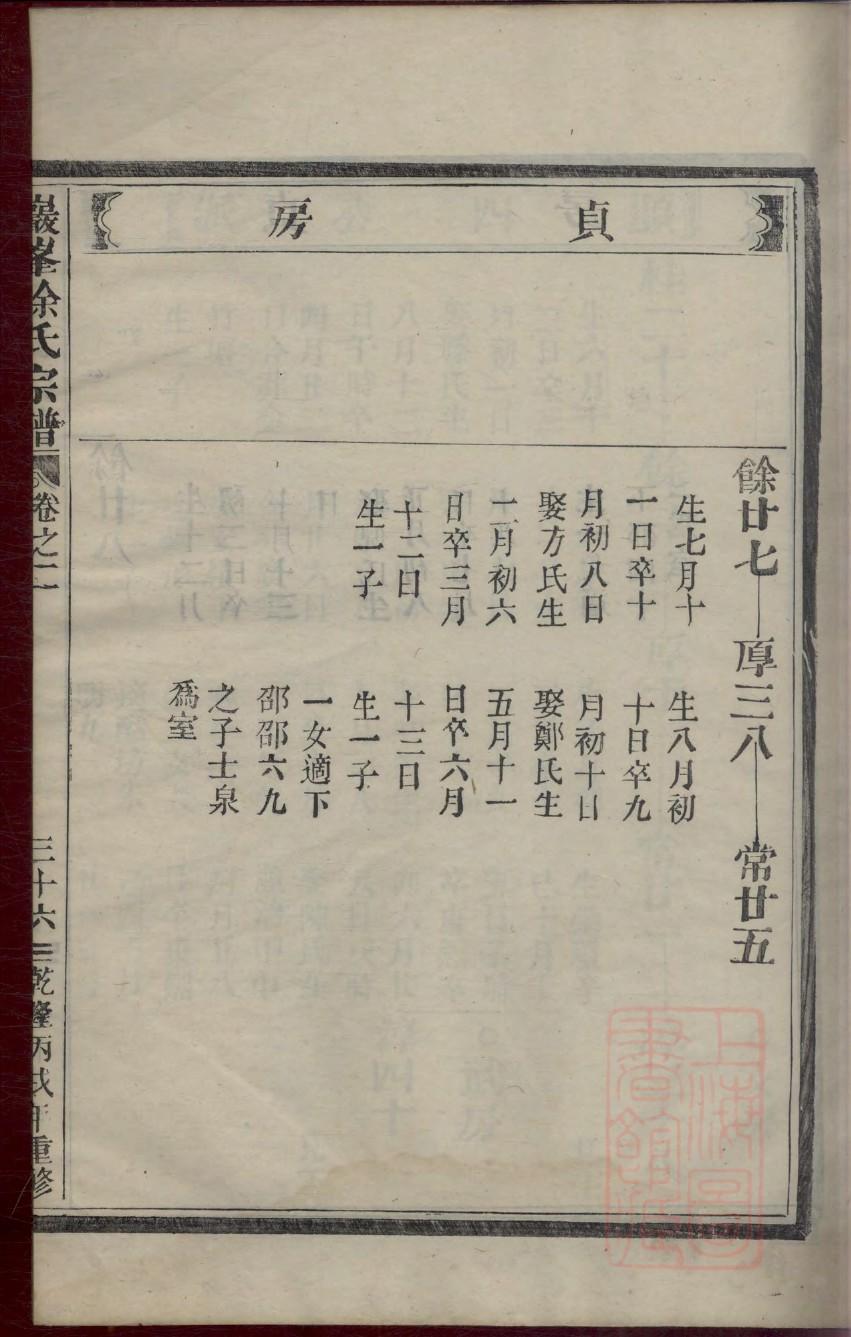 貞房
餘廿七 厚三八 常廿五
生七月十
一日卒十
月初八日
娶方氏生
十二月初六
日卒三月
十二日
生一子
生八月初
十日卒九
月初十日
娶鄭氏生
五月十一
日卒六月
十三日
生一子
一女適下
邵邵六九
之子士泉
爲室
巖峯徐氏宗譜
卷之二
三十六
乾隆丙戌年重修
上海圖書館藏